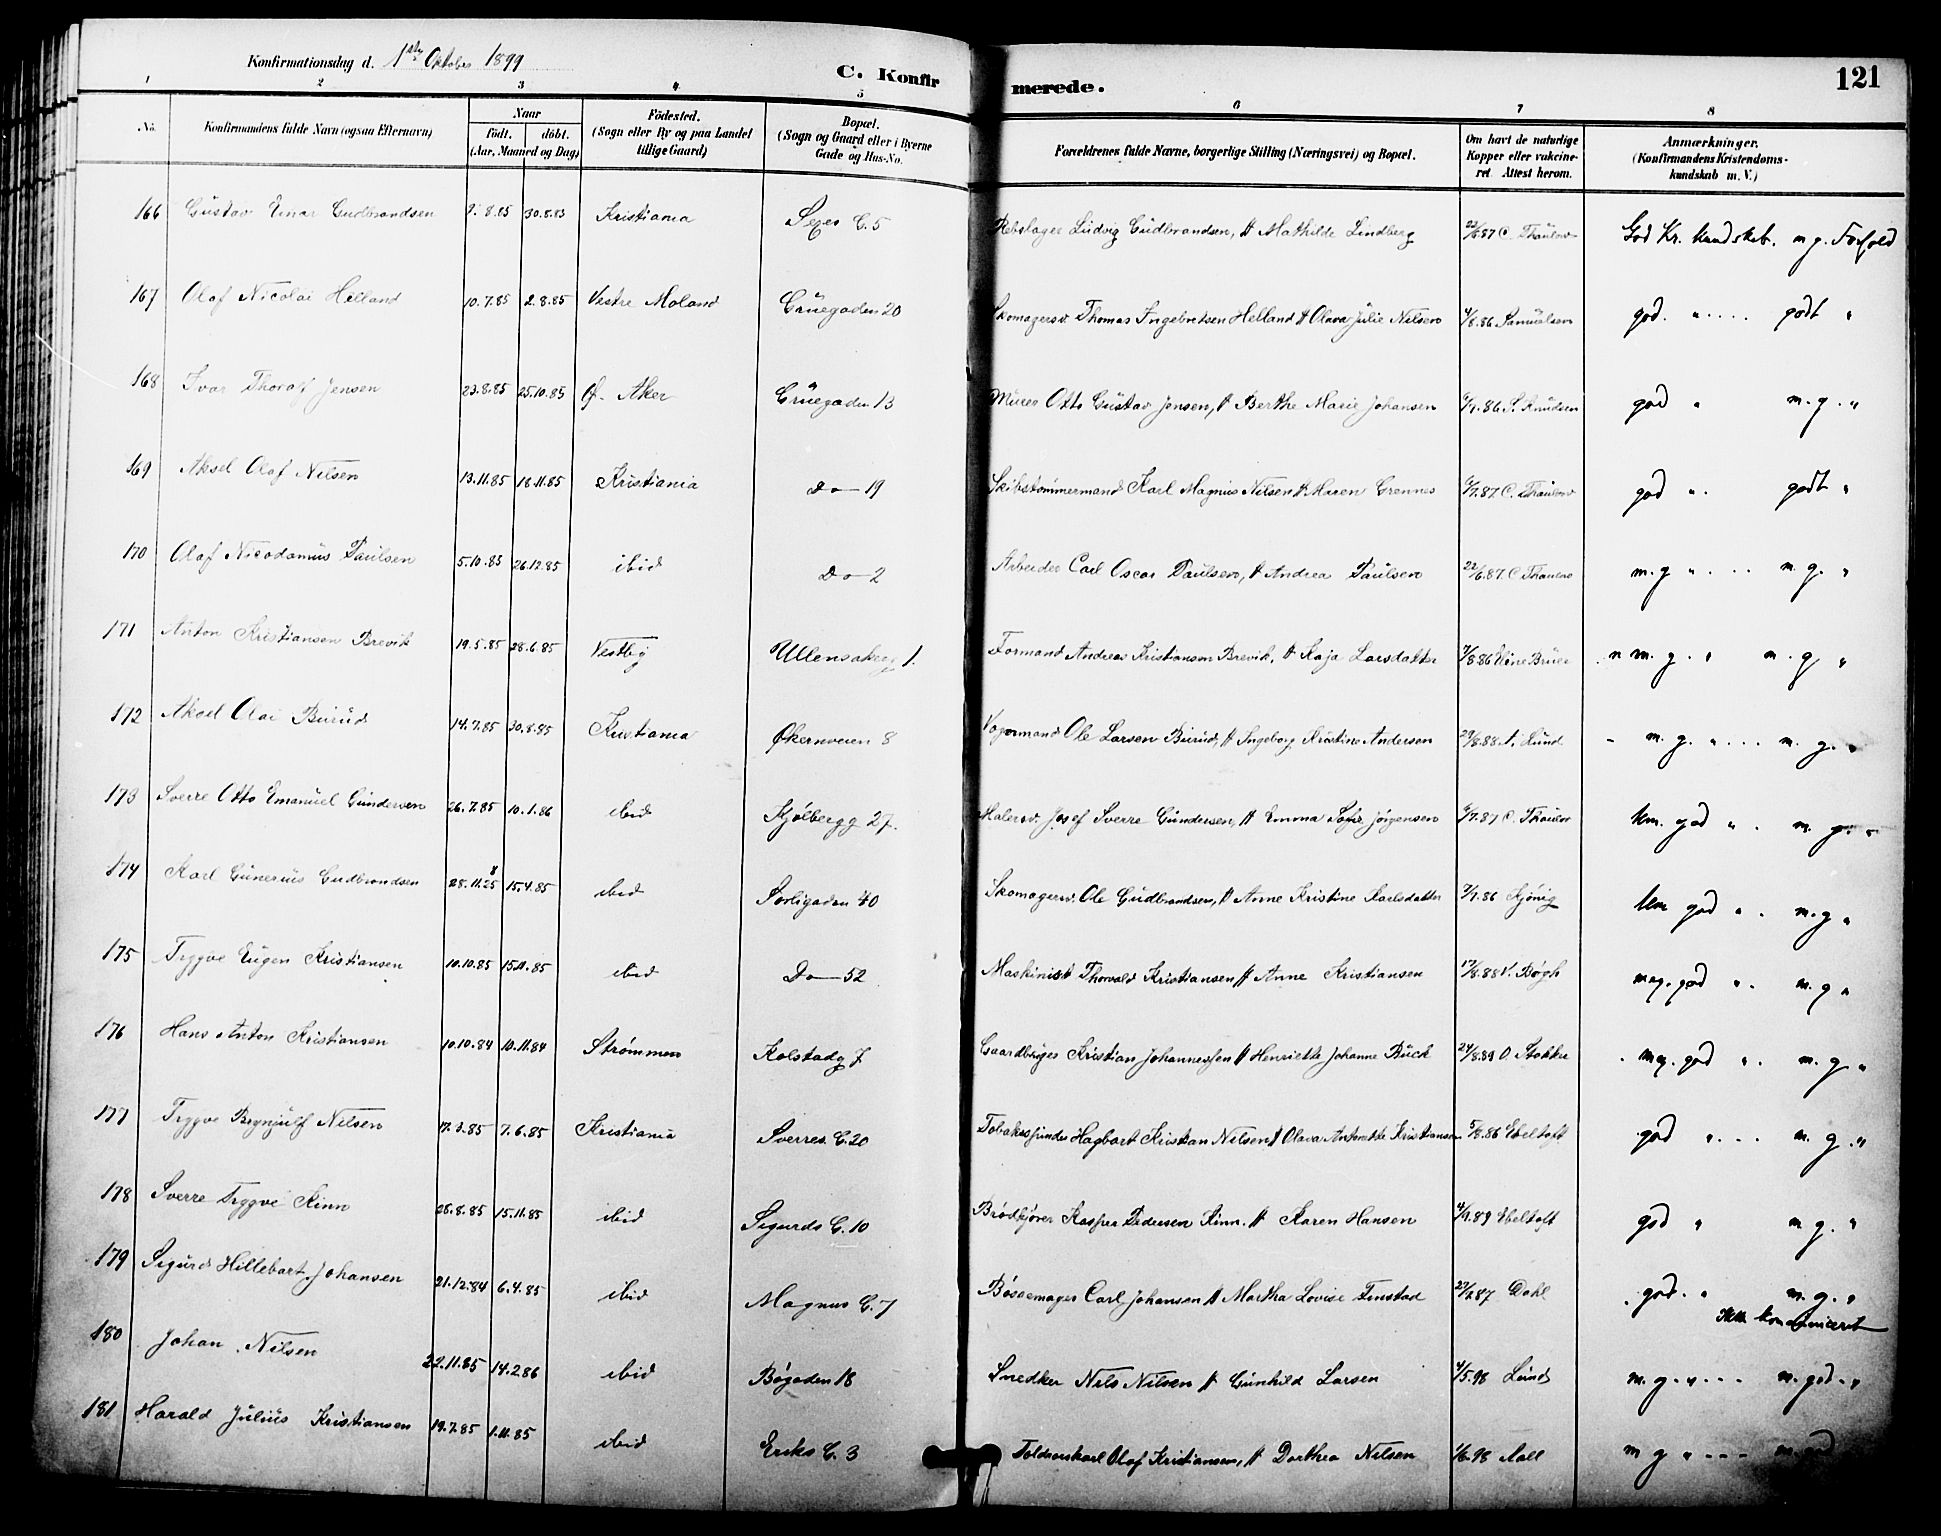 Konfirmationsdag d. 1ste Oktober 1899
C. Konfir merede. 121
1 2 3 4 5 6 7 8
No. Konfirmandens fulde Navn (ogsaa Efternavn) Naar födt. döbt. (Aar, Maaned og Dag) Födested. (Sogn eller By og paa Landet tillige Gaard) Bopæl. (Sogn og Gaard eller i Byerne Gade og Hus-No. Forældrenes fulde Navne, borgerlige Stilling (Næringsvei) og Bopæl. Om havt de naturlige Kopper eller vakcineret. Attest herom. Anmærkninger. (Konfirmandens Kristendomskundskab m. V.)
166 Gustav Einar Gudbrandsen 9.8.85 30.8.85 Kristiania C. 5 Rebslager Ludvig Gudbrandsen, & Mathilde Lindberg 22/6.87 C. Thaulow God Kr. kundskab. m. g. Forhold
167 Olaf Nicolai Helland 10.7.85 2.8.85 Vestre Moland Gruegaden 20 Skomagersv. Thomas Ingebretsen Helland & Olava Julie Nilsen 4/8.86 Samuelsen god. " .... godt "
168 Ivar Thoralf Jensen 23.8.85 25.10.85 Ø. Aker Gruegaden 13 Murer Otto Gustav Jensen, & Berthe Marie Johansen 6/7.86 S. Knudsen god " m. g. "
169 Aksel Olaf Nilsen 13.11.85 18.11.85 Kristiania Do 19 Skibstømmermand Karl Magnus Nilsen & Maren Grennes 6/7.87 C. Thaulow god ". godt "
170 Olaf Nicodamus Paulsen 5.10.85 26.12.85 ibid Do 2 Arbeider Carl Oscar Paulsen, & Andrea Paulsen 22/6.87. C. Thaulow m. g " . ... m. g. "
171 Anton Kristiansen Brevik 19.5.85 28.6.85 Vestby Ullensakerg 1. Formand Andreas Kristiansen Brevik, & Kaja Larsdatter 7/8.86 m. g. " m. g "
172 Aksel Olai Burud 14.7.85 30.8.85 Kristiania Økernveien 8 Vognmand Ole Larsen Burud, & Ingeborg Kristine Andersen 29/8.88 N. Lund m. g. " ... m. g. "
173 Sverre Otto Emanuel Gundersen 26.7.85 10.1.86 ibid Kjølbergg 27. Malersv. Josef Sverre Gundersen, & Emma Sofie Jørgensen 6/7.87 C. Thaulow god " . m. g. "
174 Karl Gunerius Gudbrandsen 28.11.85 15.4.85 ibid Sorligaden 40 Skomagersv. Ole Gudbrandsen, & Anne Kristine Karlsdatter 7/7.86 Kjønig god " . m. g "
175 Trygve Eugen Kristiansen 10.10.85 15.11.85 ibid Do 52 Maskinist Thorvald Kristiansen & Anne Kristiansen 17/8.88 V. Bøgh meg. god ". m. g "
176 Hans Anton Kristiansen 10.10.84 10.11.84 Strømmen Kolstadg 7 Gaardbruger Kristian Johannessen & Henriette Johanne Buck 24/8.89 O. Stokke meg. god ". m. g "
177 Trygve Brynjulf Nilsen 17.3.85 7.6.85 Kristiania Sverres G. 20 Tobaksspinder Hagbart Kristian Nilsen & Olava Antonette Kristiansen 5/8.86 Ebeltoft god " ... m. g. "
178 Sverre Trygve Kinn 26.8.85 15.11.85 ibid Sigurds G. 10 Brødkjører Kasper Pedersen Kinn. & Karen Hansen 4/9.89 Ebeltoft god " m g. "
179 Sigurd Hillebart Johansen 21.12.84 6.4.85 ibid Magnus G. 7 Bøssemager Carl Johansen & Martha Lovise Finstad Dahl god. " m. g. "
Ikke kommuniceret
180 Johan Nilsen 22.11.85 14.2.86 ibid Bøgaden 18 Snedker Nils Nilsen & Gunhild Larsen 4/5.98 Lund m. g. " ... m. god. "
181 Harald Julius Kristiansen 19.7.85 1.11.85 ibid Eriks G. 3 Olaf Kristiansen, & Dorthea Nilsen 1/6.98 Aall m g " ... m. god